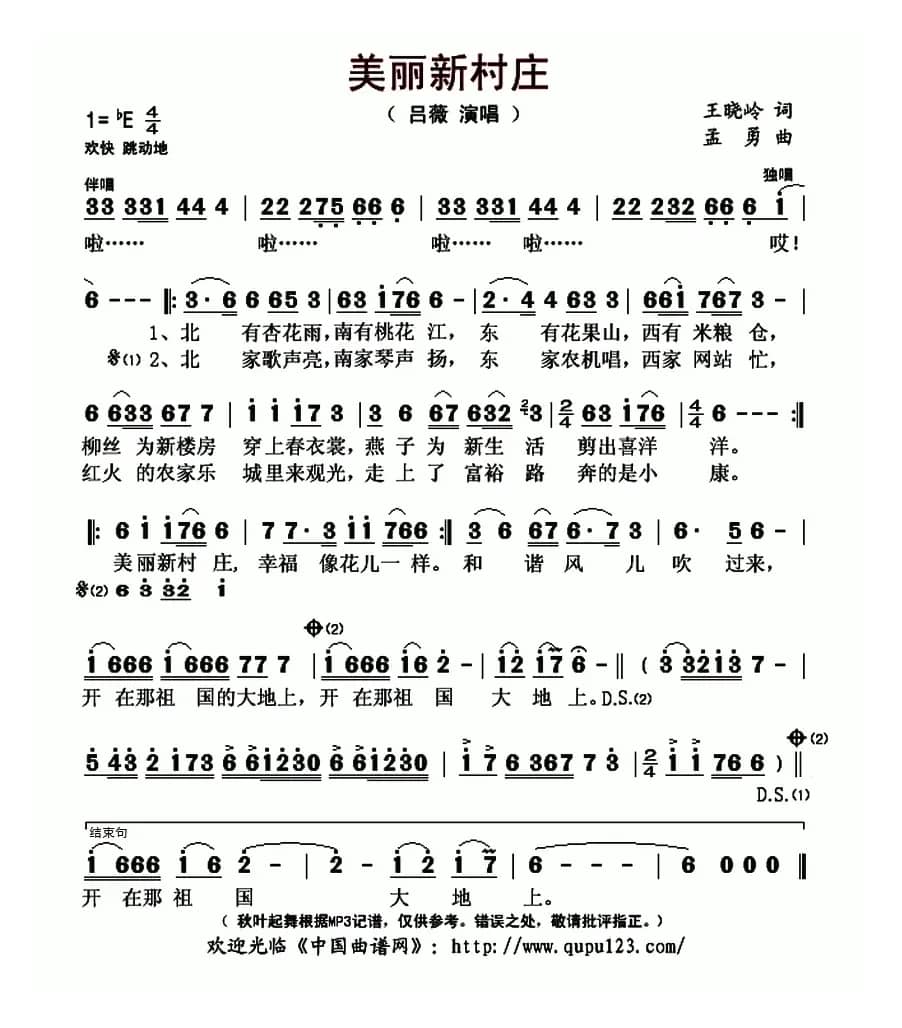 美丽新村庄
（ 吕薇 演唱 ）
1= ♭E 4/4
王晓岭 词
欢快 跳动地
孟 勇 曲
伴唱
独唱
33 331 44 4 | 22 275 66 6 | 33 331 44 4 | 22 232 66 6 i |
啦…… 啦…… 啦…… 啦…… 哎！
6 - - - |: 3· 6 6 65 3 | 63 i76 6 - | 2· 4 4 63 3 | 66i 767 3 - |
1、北 有杏花雨，南有桃花 江， 东 有花果山，西有 米粮 仓，
𝄋(1) 2、北 家歌声亮，南家琴声 扬， 东 家农机唱，西家 网站 忙，
6 633 67 7 | i i i7 3 | 3 6 67 632 2/4 3 | 2/4 63 i76 | 4/4 6 - - - :|
柳丝 为新楼房 穿上春衣裳，燕 子 为 新生 活 剪出喜洋 洋。
红火 的农家乐 城里来观光，走 上 了 富裕 路 奔的是小 康。
|: 6 i i76 6 | 7 7· 3 i i 766 :| 3 6 67 6· 7 3 | 6· 5 6 - |
美丽新村 庄， 幸福 像花儿一 样。 和 谐 风 儿 吹 过来，
𝄋(2) 6 3 32 i
𝄌(2)
i666 i666 77 7 | i666 i6 2 - | i2 i7 6 - || ( 3 32i3 7 - |
开 在那祖 国的大地上，开 在那祖 国 大 地 上。D.S.(2)
5 43 2 i73 6 6i230 6 6i230 | i 7 6 367 7 3 | 2/4 i i 76 6 ) ||
𝄌(2)
D.S.(1)
结束句
i666 i 6 2 - | 2 - i 2 i 7 | 6 - - - | 6 0 0 0 ||
开 在那 祖 国 大 地 上。
（ 秋叶起舞根据MP3记谱，仅供参考。错误之处，敬请批评指正。）
欢迎光临《中国曲谱网》：http://www.qupu123.com/